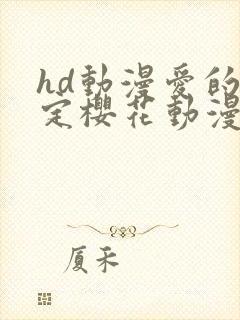 hd動漫愛的
定櫻花動漫
厦禾